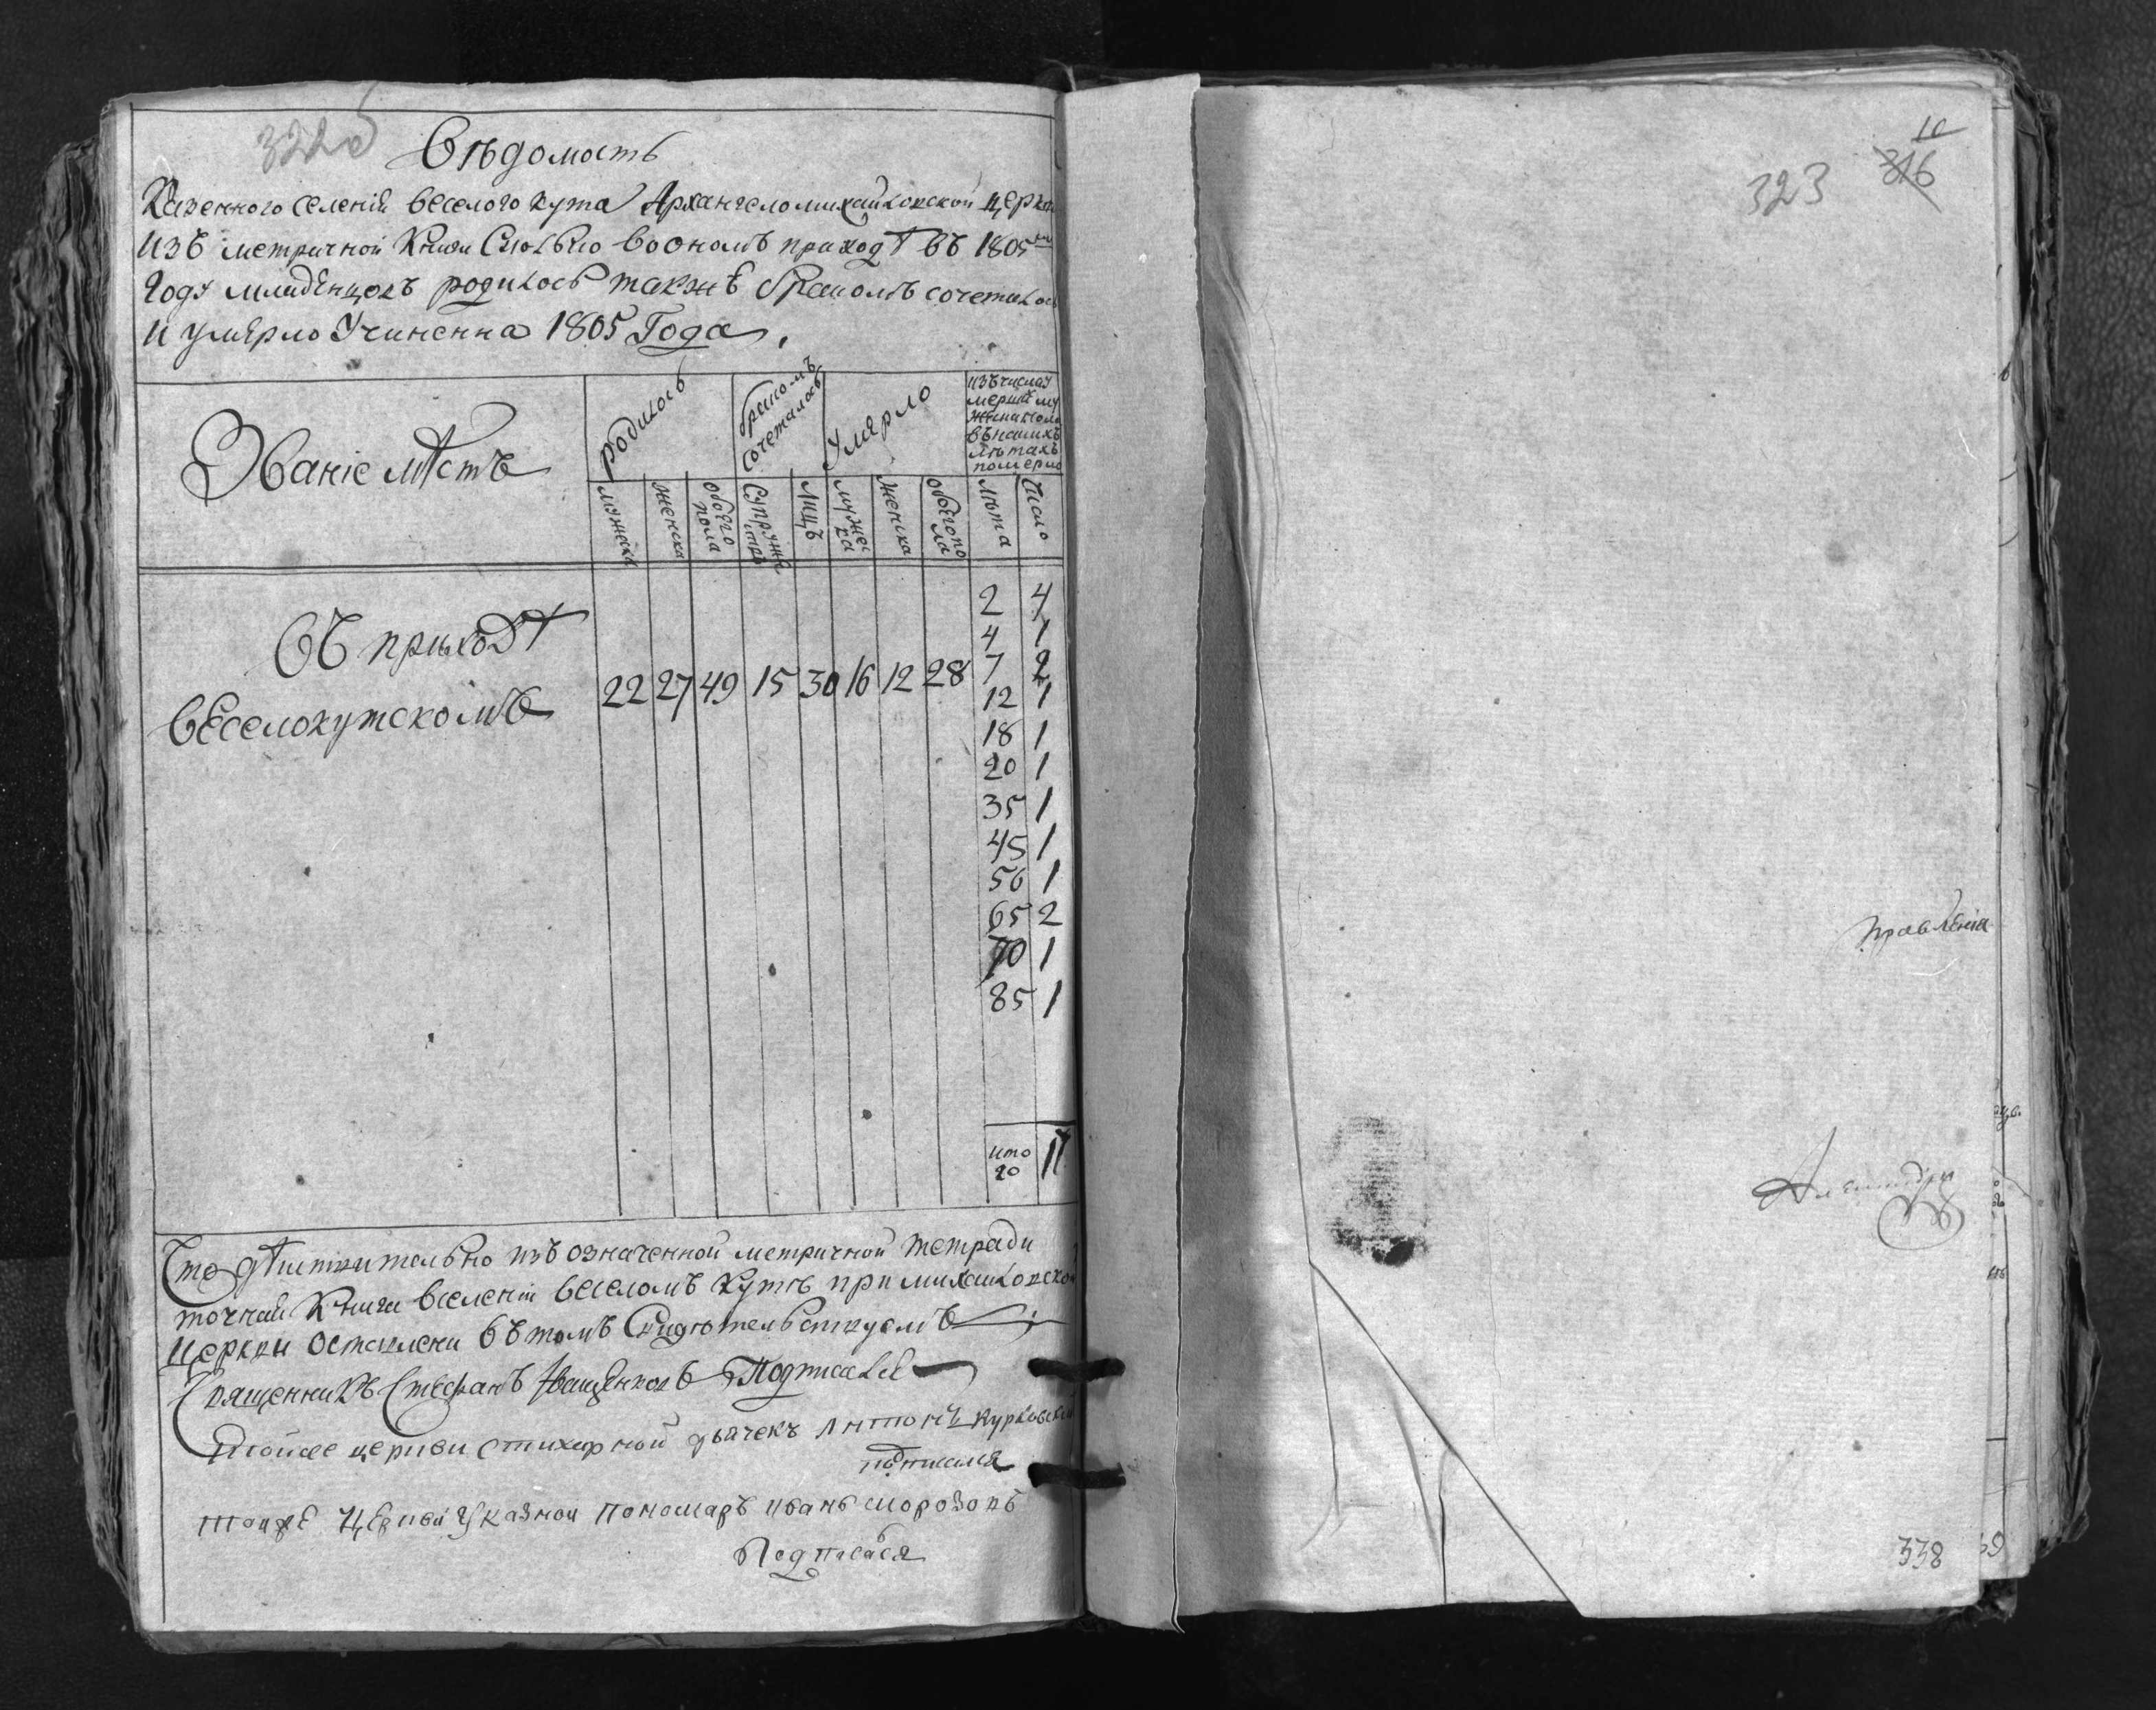 322об
Вѣдомость
Казенного селения веселого кута Архангеломихайловской церкви
изъ метричной книги сколько воономъ приходѣ въ 1805м
году младенцовъ родилось такжѣ бракомъ сочеталось
и умерло Учиненна 1805 Года
Званіе мѣстъ
родилось
бракомъ сочеталось
умерло
изъ числа у
мершихъ му
жеска пола
въ какихъ
лѣтахъ
померло
мужеска
женска
обоего пола
супружествъ
лицъ
мужеска
женска
обоего пола
лѣта
число
въ приходѣ
веселокутскомъ
22 27 49 15 30 16 12 28
2 4
4 1
7 2
12 1
18 1
20 1
35 1
45 1
56 1
65 2
70 1
85 1
ито
го 17
Что дѣйствительно изъ означенной метричной тетради
точнай книги вселеніи веселомъ кутѣ при михайловской
церкви оставлени въ томъ свидѣтельствуемъ
Священникъ Стефанъ Иващенковъ подписался
тойже церкви стихарной дьячекъ Антонъ
подписался
тоижѣ церкви указной пономаръ иванъ морозовъ
Подписася
10
316
323
правления
338